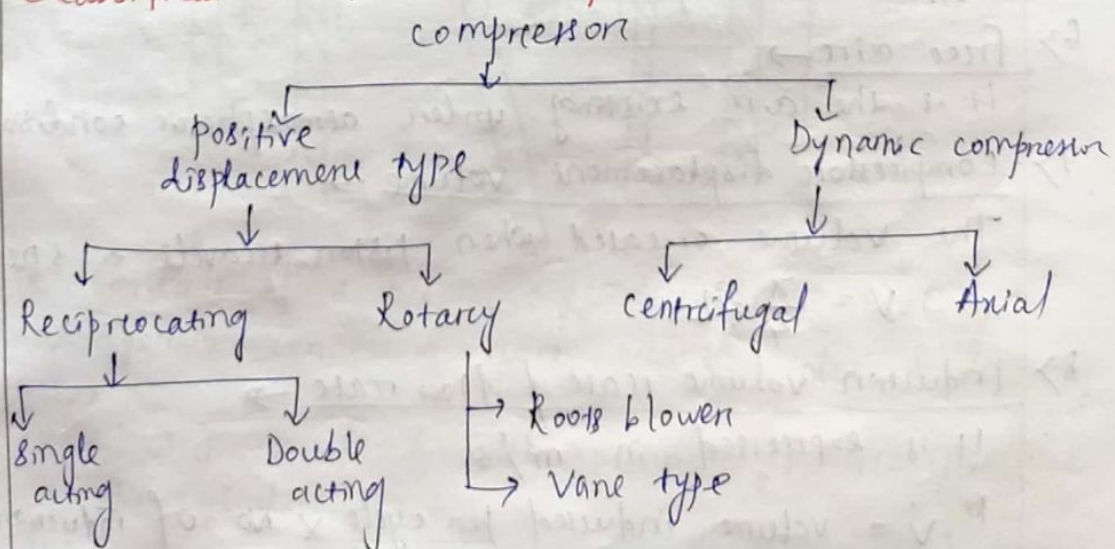 compressor
positive
displacement type
Dynamic compressor
Reciprocating
Rotary
Centrifugal
Axial
Single
acting
Double
acting
Roots blower
Vane type